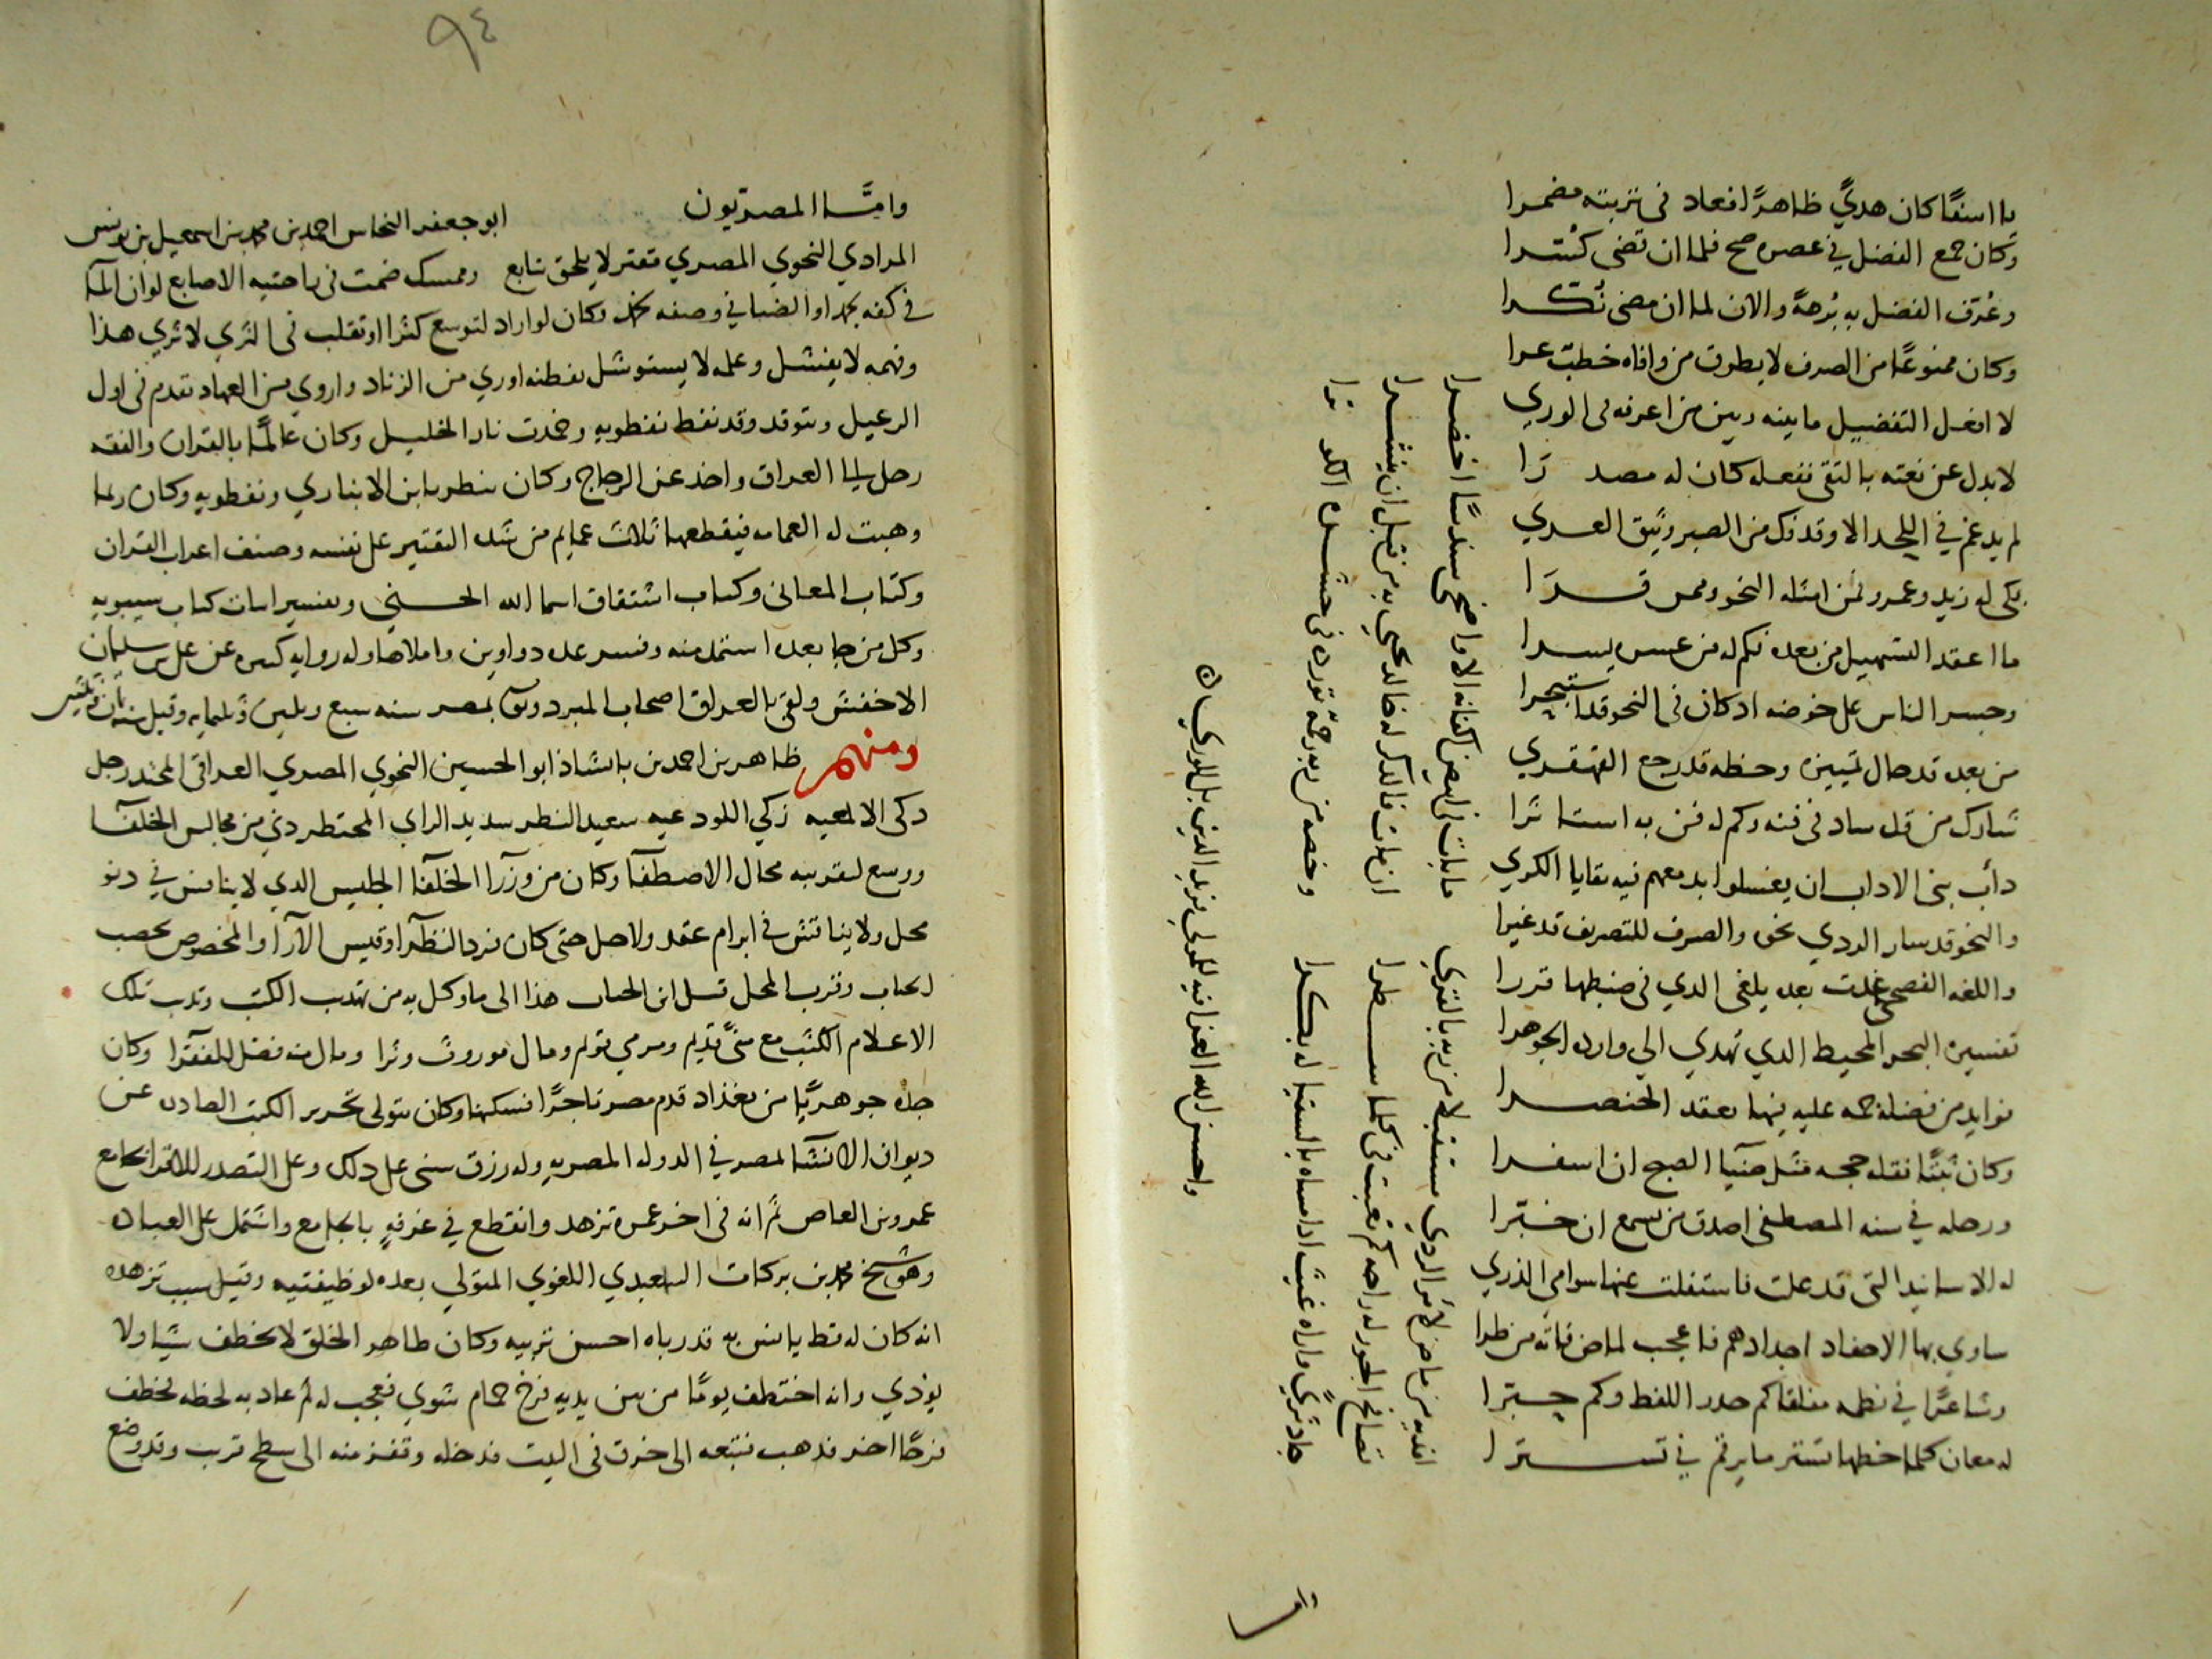 يا اسفًا كان هديً ظاهرًا فعاد في تربته مضمرا
وكان جمع الفضل في عصره صح فلما ان تضى كسّرا
وعُرّف الفضل به بُرهةً والان لما ان مضى نُكّرا
وكان ممنوعًا من الصرف لا يطرق من وافاه خطب عرا
لا افعل التفضيل ما بينه وبين من اعرفه في الوري
لا بدل عن نعته بالتقى ففعله كان له مصدرا
لم يدغم في اللحد الا وقد فك من الصبر وثيق العري
بكى له زيد وعمرو فمن امثله النحو وممن قرا
ما اعقد التسهيل من بعده فكم له من عسره يسرا
وجسر الناس على خوضه اذ كان في النحو قد استبحرا
من بعده قد حال تمييزه وحظه قد رجع القهقري
شارك من قد ساد في فنه وكم له فن به استاثرا
دأب بني الاداب ان يغسلوا بدمعهم فيه بقايا الكري
والنحو قد سار الردي نحوه والصرف للتصريف قد غيرا
واللغه الفصحى غدت بعده يلغى الذي في ضبطها قررا
تفسيره البحر المحيط الذي تهدي الى وارده الجوهرا
فوايد من فضله جمه عليه فيها نعقد الخنصرا
وكان ثبتًا نقله حجه مثل ضيا الصبح ان اسفرا
ورحله في سنه المصطفى اصدق من يسمع ان خبّرا
له الاسانيد التي قد علت فاستفلت عنها سوامي الذري
ساوي بها الاحفاد اجدادهم فاعجب لماض فاته من طرا
وشاعرًا في نظمه مفلقا كم حرر اللفظ وكم حبّرا
له معان كلما خطها تستر ما يرقم في تسترا
افديه من ماض لأمر الردي مستقبلا من ربه بالقري
ما بات في ابيض اكفانه الا واضحى سندسًا اخضرا
تصافح الحور له راحه كم تعبت في كلما سطرا
ان مات فالذكر له خالد يحيي به من قبل ان ينشرا
جاد ثريً واراه غيث اذا مساه بالسقيا له بكرا
وخصه من ربه رحمة تورده في حشره الكوثرا
واحسن الله العزا فيه للمولى فريد الدين بل للوري

وامّا المصريّون
ابو جعفر النحاس احمد بن محمد بن اسمعيل بن يونس
المرادي النحوي المصري مقتر لا يلحق بتابع وممسك ضمت في راحتيه الاصابع لو ان الما
في كفه وكان لو اراد لتوسع كثرا او تقلب في الثري لا ثري هذا
وفهمه لا يفشل وعلمه لا يستوشل بفطنه اوري من الزناد واروي من العهاد تقدم في اول
الرعيل وتوقد وقد نفط نفطويه وخمدت نار الخليل وكان عالمًا بالقران والفقه
رحل الى العراق واخذ عن الزجاج وكان ينظر بابن الانباري ونفطويه وكان ربما
وهبت له العمامه فيقطعها ثلاث عمايم من شده التقتير على نفسه وصنف اعراب القران
وكتاب المعاني وكتاب اشتقاق اسما الله الحسني وتفسير ابيات كتاب سيبويه
وكل من جا بعده استمد منه وفسر عده دواوين واملاها وله روايه كثيره عن علي بن سليمان
الاخفش ولقى بالعراق اصحاب المبرد وتوفى بمصر سنه سبع وثلثين وثلثمايه وقيل سنه ثمان وثلثين
ومنهم طاهر بن احمد بن بابشاذ ابو الحسين النحوي المصري العراقي المحتد رجل
ذكى الالمعيه زكي اللوذعيه سعيد النظر سديد الراي دني من مجالس الخلفا
ووسع لقربه مجال الاصطفا وكان من وزرا الخلفا الجليس الذي لا ينافس في دنو
محل ولا يناقش في ابرام عقد ولا حل حتى كان فرد النظرا وقيس الارا والمخصوص بخصب
الجناب وقرب المحل هذا الى ما وكل به من تهذيب الكتب وترتيب تلك
الاعلام الكتب مع متى قديم ومرمي قويم ومال موروث وثرا ومال منه فضل للفقرا وكان
جدّه جوهريًا من بغداد قدم مصر تاجرًا فسكنها وكان يتولى تحرير الكتب الصادره عن
ديوان الانشا بمصر في الدوله المصريه وله رزق سنى على ذلك وعلى التصدر للاقرا بجامع
عمرو بن العاص ثم انه في اخر عمره تزهد وانقطع في غرفهٍ بالجامع واشتمل على العباده
وهو شيخ محمد بن بركات السعيدي اللغوي المتولي بعده لوظيفتيه وقيل سبب تزهده
انه كان له قط يانس به قد رباه احسن تربيه وكان طاهر الخلق لا يخطف شيا ولا
يوذي وانه اختطف يومًا من بين يديه فرخ حمام شوي فعجب له ثم عاد به لحظه لخطف
فرخًا اخر فذهب فتبعه الى خرق في البيت فدخله وقفز منه الى سطح قرب وقد وضع
٩٤